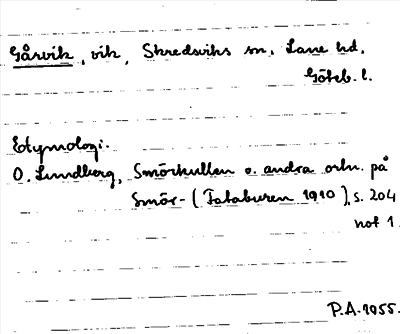 Gårvik, vik, Skredsviks sn, Lane hd,
Göteb. l.
Etymologi.
O. Lundberg, Smörkullen o. andra ortn. på
Smör- (Fataburen 1910), s. 204
not 1
P.A. 1955.